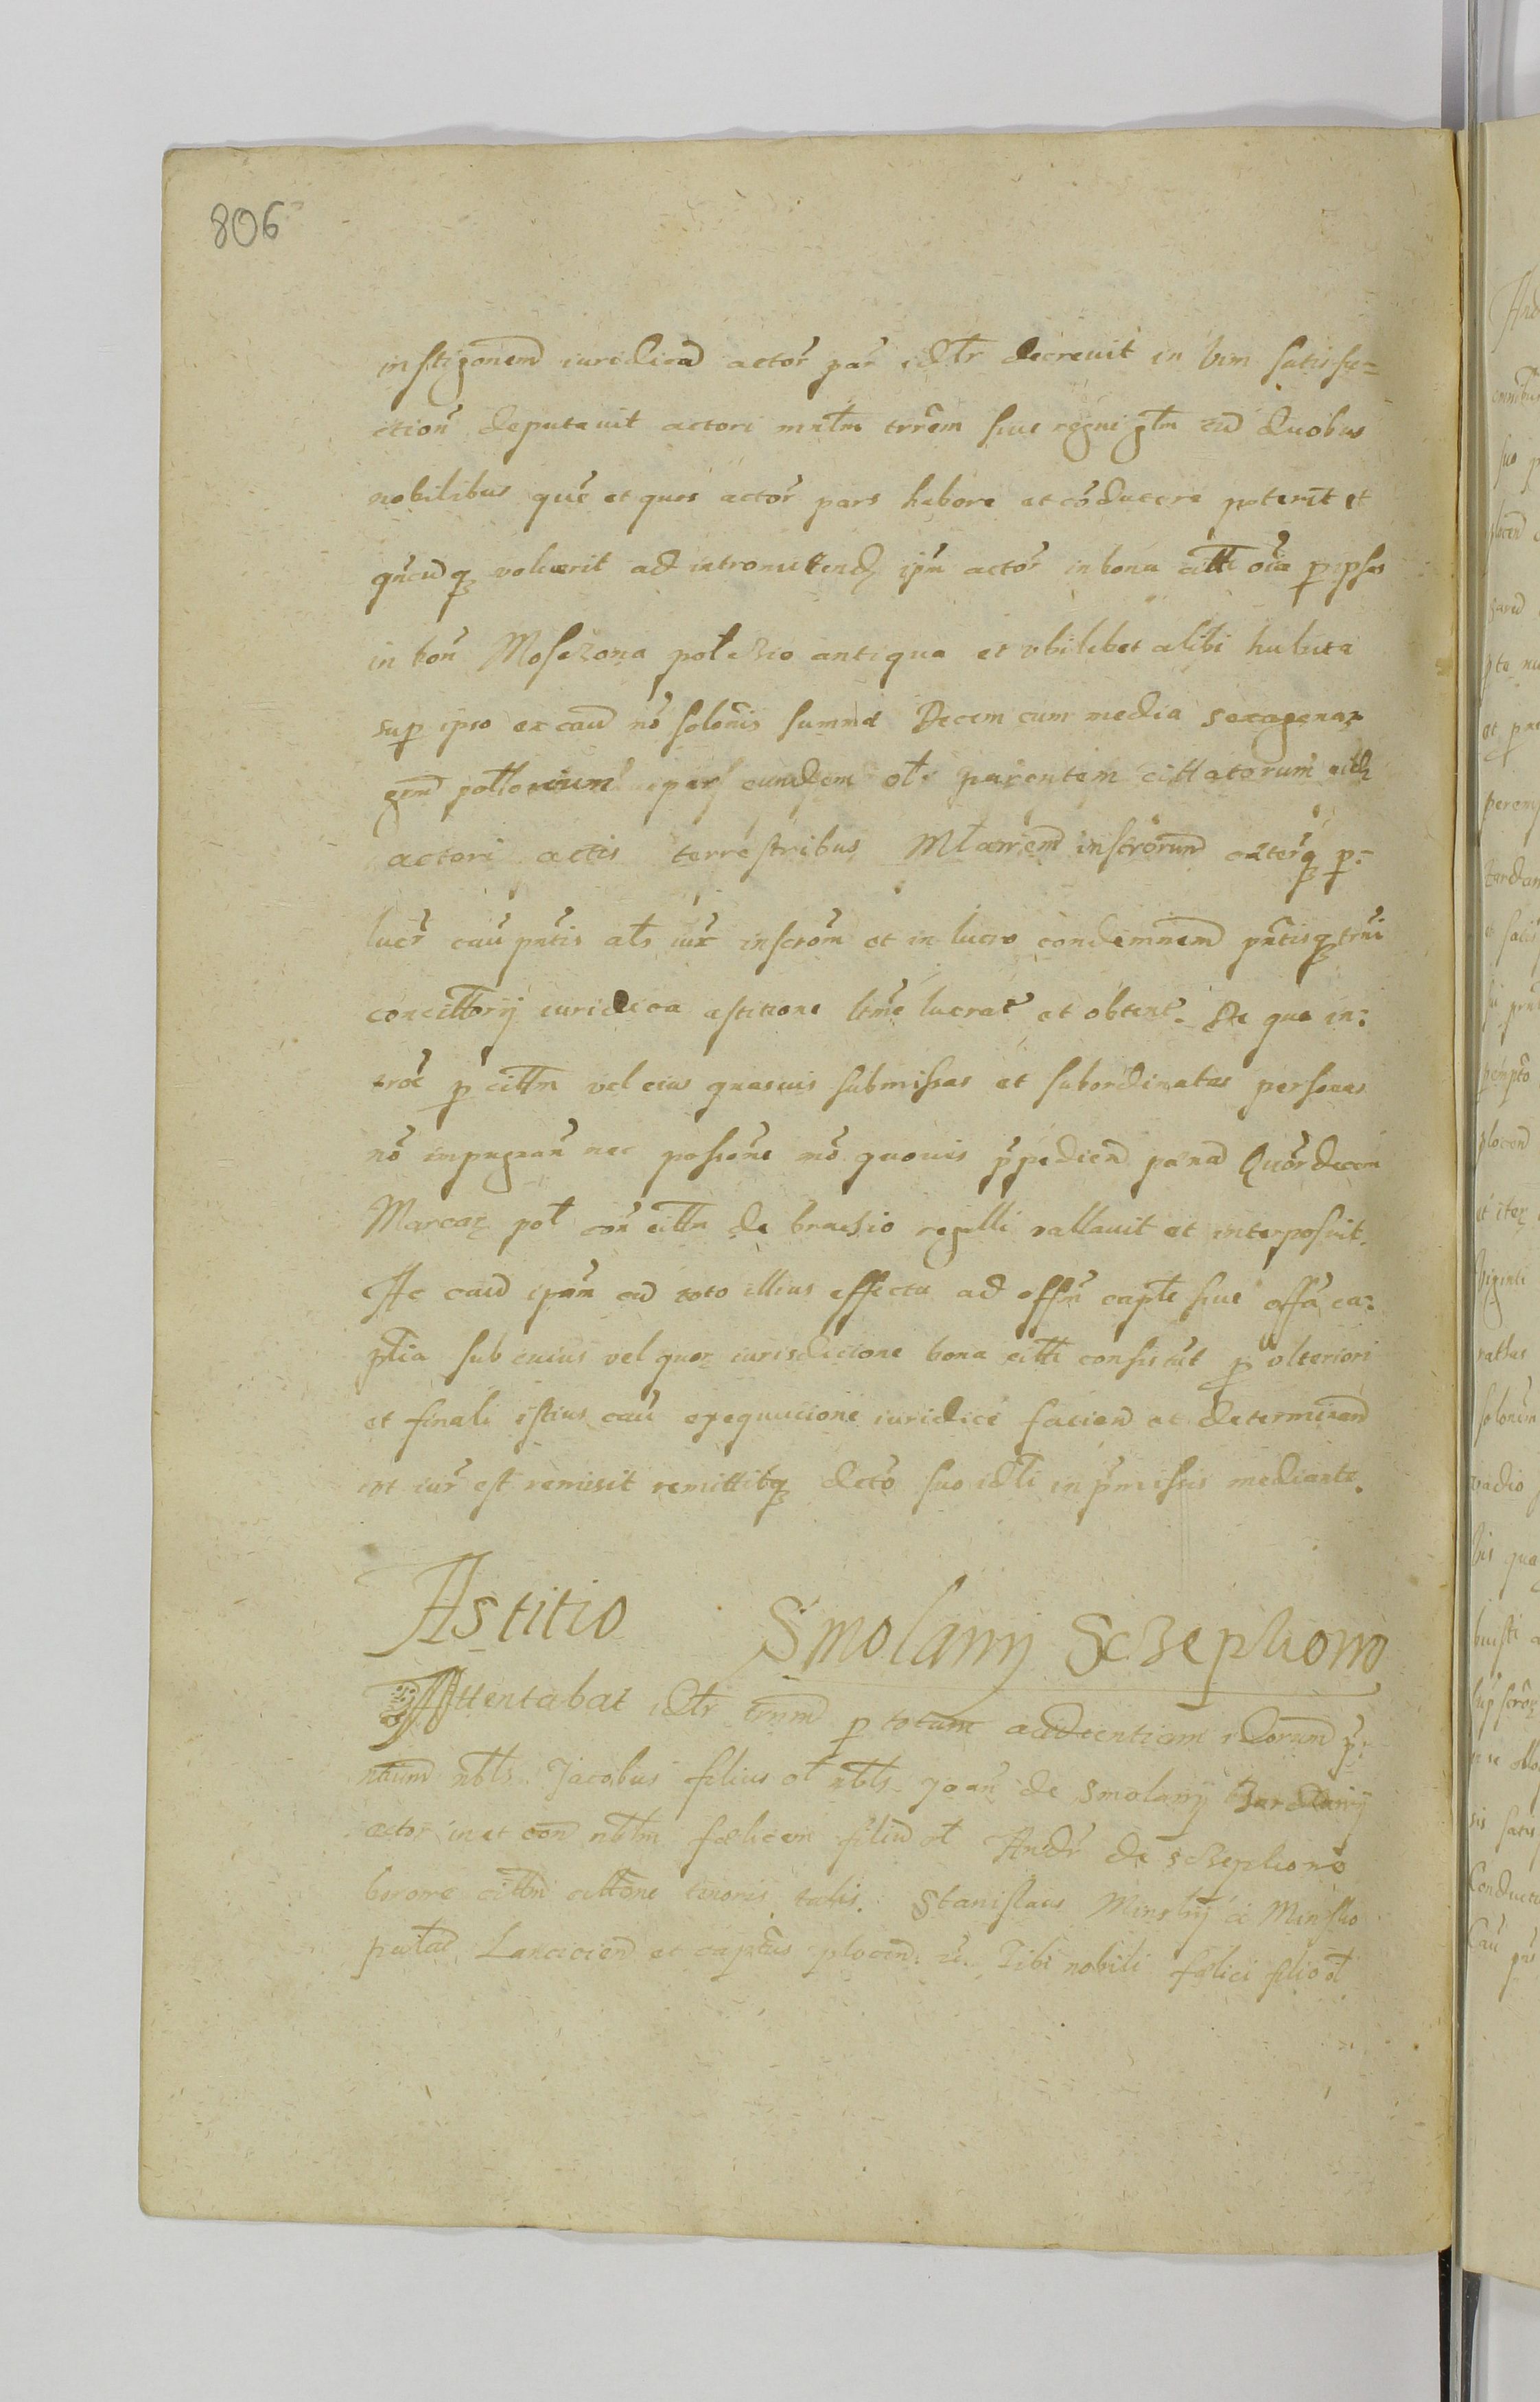 806
instigonem iuridica actor par idlr decreuit in vim satisfa=
ction deputauit actori mnlm trrem siue regni glm cu duobus
nobilibus que et quos actor pars habere et coducere poterit et
qncuq voluerit ad intromittend ipm actor in bona citti oia p ipsos
in bon Moseżona pol antiqua et vbilibet alibi habita
sup ipso ex cau no solonis summa Decem cum media sexagenar
grm per eundem ol parentem cittatorum eid
actori actis terrestribus Mlawiem inscrorum p=
lucr cau pntis als iux inscrom et in lucro condemnem pntisq trni
concittorij iuridica astitione ltme lucrat et obtent. De qua in=
tro p cittm vel eius quasuis submissas et subordinatas personas
no impugnan nec possione mo quouis ppediend pana Quordecem
Marcar pol con cittm de regulli vallauit et interposuit.
Ac cau ipam cu toto illius effectu ad offm capte siue offa ca=
ptia sub cuius vel quor iurisdicione bona citti consistut p vlteriori
et finali istius cau exequucione iuridice faciend ac determinand
vt iur est remisit remittitq dcto suo idli in pmissis mediante.
Astitio Smolanij Sczepliono
Attentabat idlr trnm p totam audientiam idorum p=
ntium nbls Jacobus filius ol nbls Joan de Smolanij Żardanij
actor in et con nblm foelicem filiu ol Andr de sczepliono
cittm cittone tenoris talis. Stanislaus Minskij a Minsko
palat Lancicien et captus plocen. Tibi nobili foelici filio ol